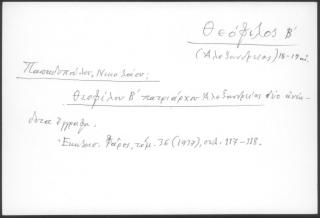 Θεόφιλος Β΄
(Αλεξανδρείας) 18-19 αἰ.
Πασπαλοπούλου, Νικολάου:
Θεοφίλου Β΄ πατριάρχου Ἀλεξανδρείας δύο ἀνέκ-
δοτα ἔγγραφα.
Ἐκκλησ. Φάρος, τόμ. 36 (1937), σελ. 117-118.